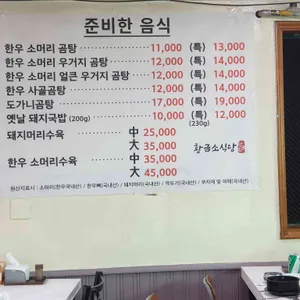 준비한 음식
한우 소머리 곰탕 11,000 (특) 13,000
한우 소머리 우거지 곰탕 12,000 (특) 14,000
한우 소머리 얼큰 우거지 곰탕 12,000 (특) 14,000
한우 사골곰탕 12,000 (특) 14,000
도가니곰탕 17,000 (특) 19,000
옛날 돼지국밥 (200g) 10,000 (특) 12,000
(230g)
돼지머리수육 中 25,000
大 35,000
한우 소머리수육 中 35,000
大 45,000
황금소식당
원산지표시 : 소머리(한우국내산) / 한우뼈(국내산) / 돼지머리(국내산) / 깍두기(국내산) / 부자재 및 야채(국내산)